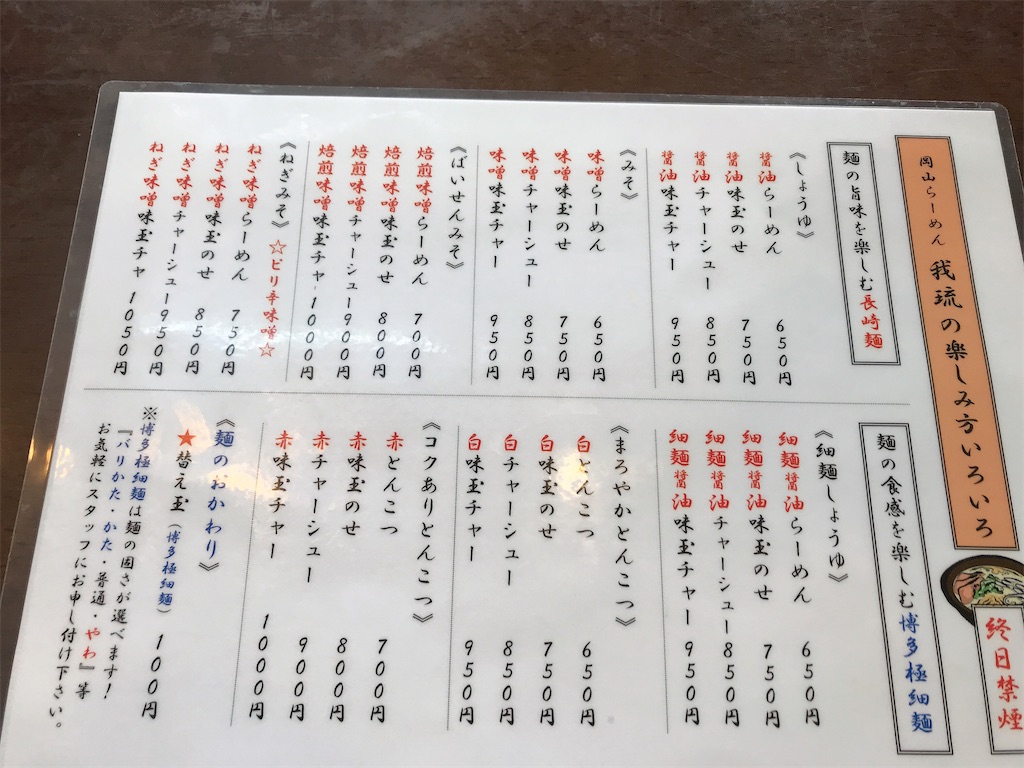 岡山らーめん 我琉の楽しみ方いろいろ
終日禁煙
麺の旨味を楽しむ長崎麺
《しょうゆ》
醤油らーめん 650円
醤油味玉のせ 750円
醤油チャーシュー 850円
醤油味玉チャー 950円
《みそ》
味噌らーめん 650円
味噌味玉のせ 750円
味噌チャーシュー 850円
味噌味玉チャー 950円
《ばいせんみそ》
焙煎味噌らーめん 700円
焙煎味噌味玉のせ 800円
焙煎味噌チャーシュー 900円
焙煎味噌味玉チャ 1000円
《ねぎみそ》 ☆ピリ辛味噌☆
ねぎ味噌らーめん 750円
ねぎ味噌味玉のせ 850円
ねぎ味噌チャーシュー 950円
ねぎ味噌味玉チャ 1050円
麺の食感を楽しむ博多極細麺
《細麺しょうゆ》
細麺醤油らーめん 650円
細麺醤油味玉のせ 750円
細麺醤油チャーシュー 850円
細麺醤油味玉チャー 950円
《まろやかとんこつ》
白とんこつ 650円
白味玉のせ 750円
白チャーシュー 850円
白味玉チャー 950円
《コクありとんこつ》
赤とんこつ 700円
赤味玉のせ 800円
赤チャーシュー 900円
赤味玉チャー 1000円
《麺のおかわり》
★替え玉(博多極細麺) 100円
※博多極細麺は麺の固さが選べます!
『バリかた・かた・普通・やわ』等
お気軽にスタッフにお申し付け下さい。